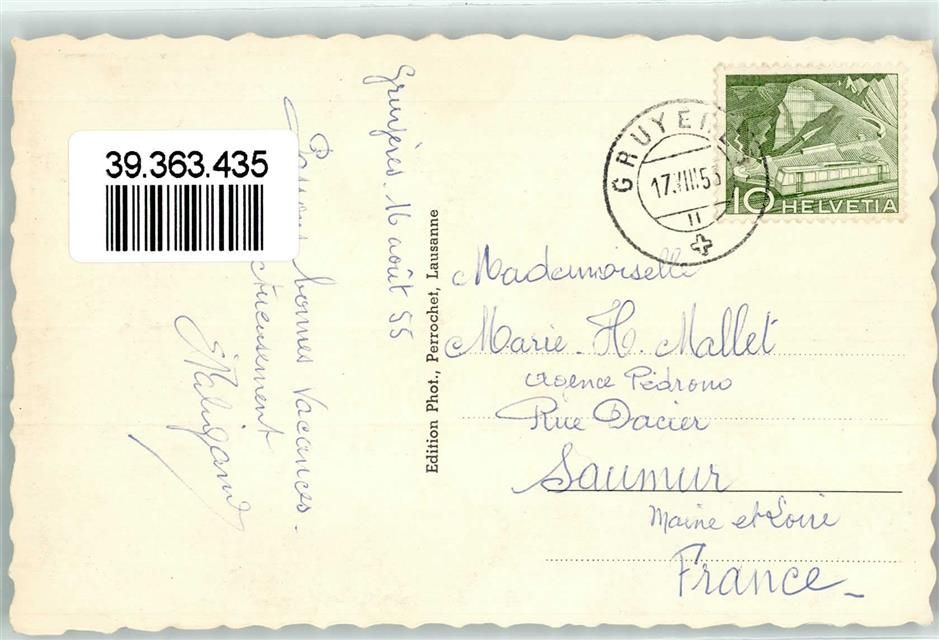 39.363.435
Gruyères. 16 août 55
bonnes Vacances.
Edition Phot., Perrochet, Lausanne
GRUYERES
17.VIII.55
10 HELVETIA
Mademoiselle
Marie. H. Mallet
agence Pédrono
Rue Dacier
Saumur
Maine et Loire
France